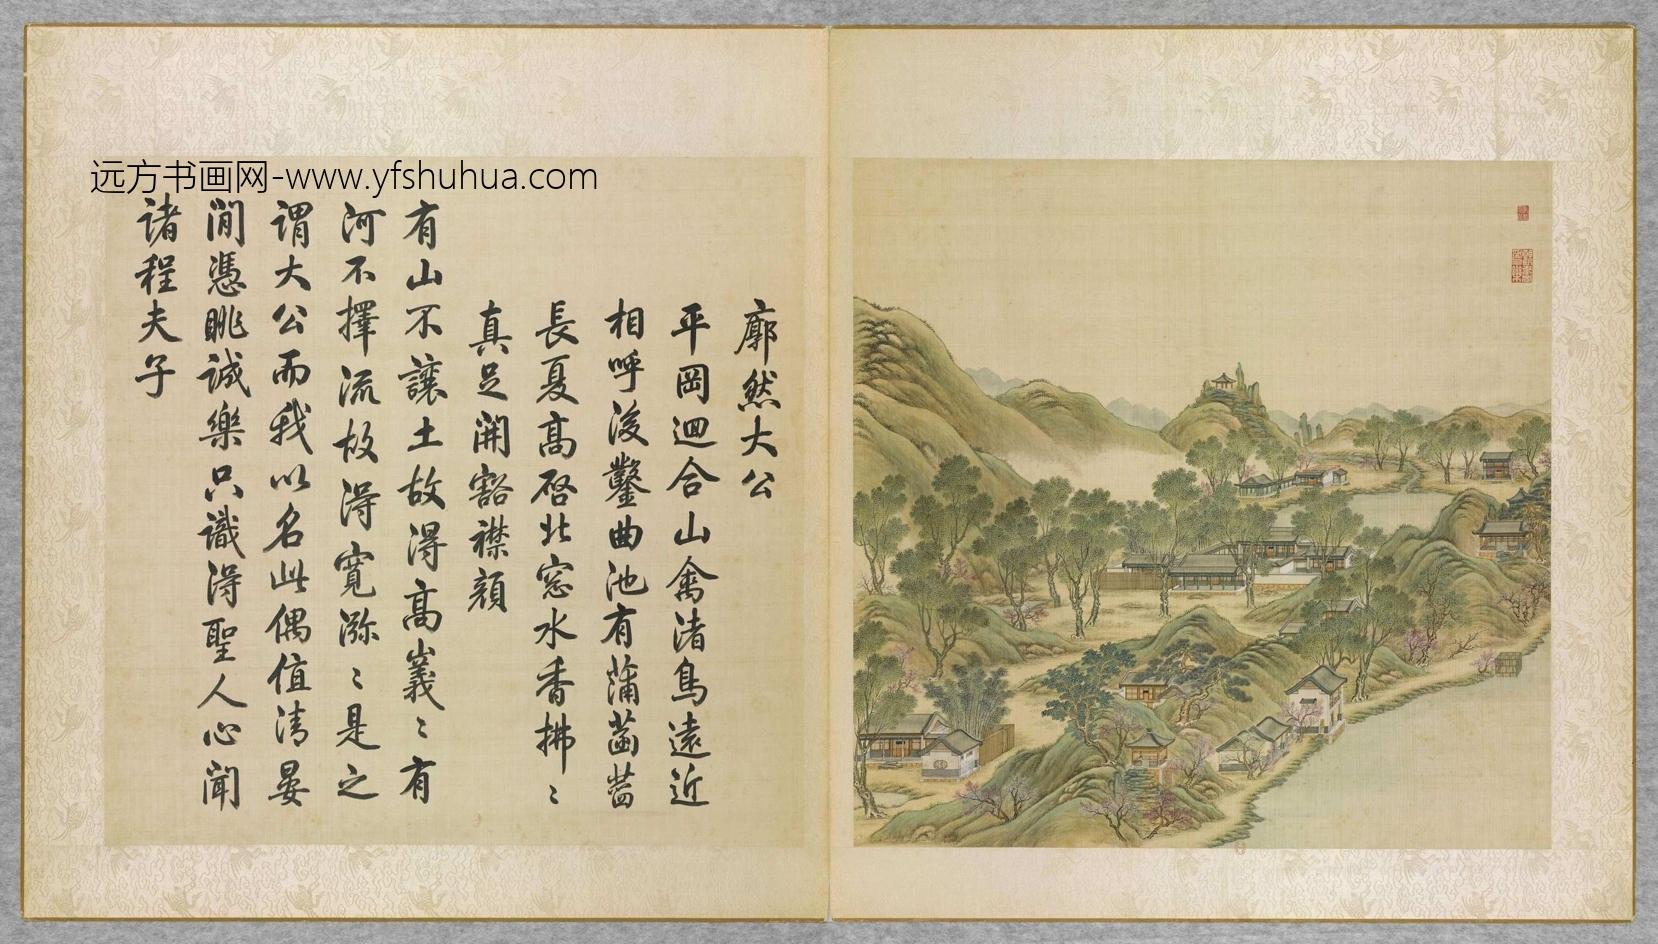 远方书画网-www.yfshuhua.com
廓然大公
平岡迴合山禽渚鳥遠近
相呼後鑿曲池有蒲菡萏
長夏髙啓北窓水香拂〻
真足開豁襟顔
有山不讓土故得髙峩〻有
河不擇流故得寛瀰〻是之
謂大公而我以名此偶值清晏
閒憑眺誠樂只識得聖人心聞
諸程夫子